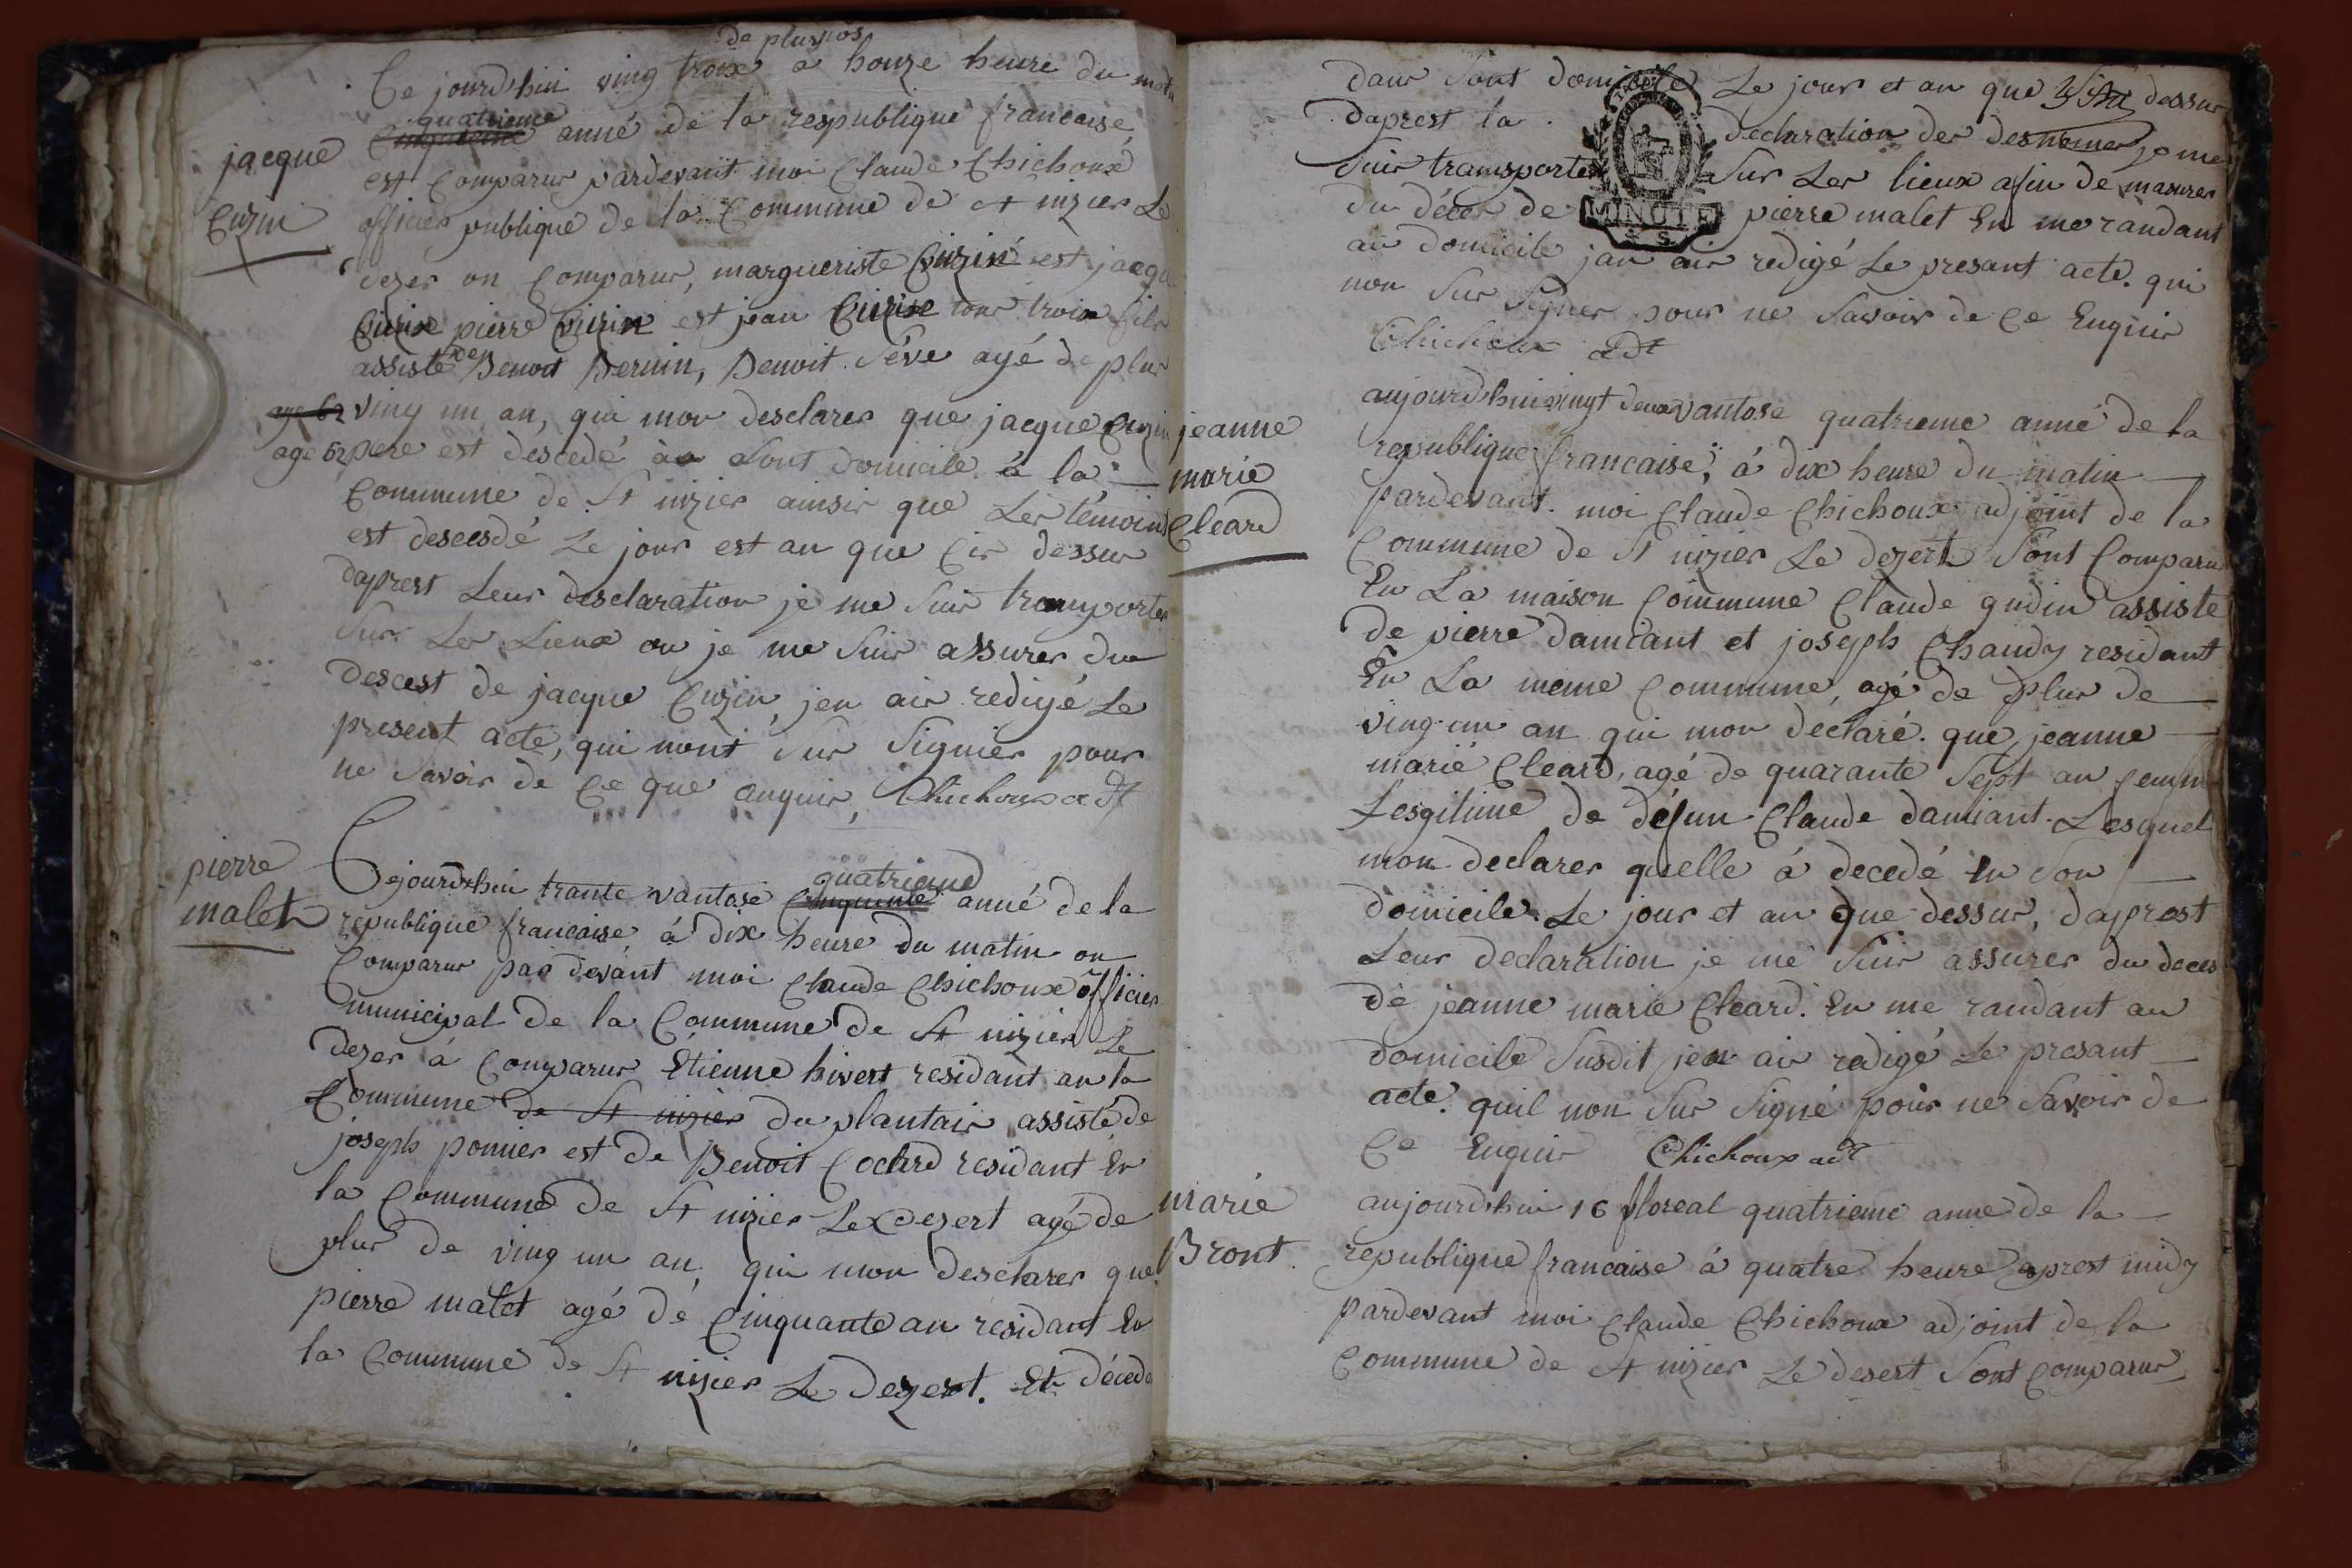 de pluvios
Ce jourd'hui ving troix a honze heure du matin
quatrieme
cinquieme anné de la respublique francaise,
jacque
est comparus pardevant moi Claude Chichoux
Cuzin
officier publique de la Commune de St nizier Le
dezer on comparus, margueriste Cuizin est jacque
Cuizin pierre Cuizin est jean Cuizin tous trois fils
assisté de Benoit Bernin, Benoit Séve agé de plus
age 62 ving un an, qui mon desclarer que jacque Cuzin
age 62 pere est déscedé àa sont domicile à la
Commune de St nizier ainsir que Les témoin
est descesdé Le jour est an que Cir dessus
daprest Leur desclaration je me suis transporter
sur Les Lieux ou je me suis assurer du
descest de jacque Cuzin, jen air redigé Le
present acte, qui nont sur signier pour
ne savoir de Ce que anquir, Chichoux adt
pierre
malet
Cejourdhui trante vantose quatrieme cinquieme anné de la
republique francaise, à dix heure du matin on
Comparus par devant moi Claude Chichoux officier
municipal de la Commune de St nizier Le
dezer à Comparus Étienne hivert residant an la
Commune de St nizier du plantair assisté de
joseph ponier est de Benoit Coclard residant En
la Commune de St nizier Le dezert agé de
plus de ving un an, qui mon desclarer que
pierre malet agé dé Cinquante an residant En
la Commune de St nizier Le dezert. Et décéda
dans sont domicile Le jour et an que dessus
daprest la declaration des je me
suis transporter sur Les lieux afin de masurer
MINUTE
du décès de pierre malet En me randant
au domicile jan air redigé Le presant acte. qui
non sur signer pour ne savoir de Ce Enquir
Chichoux adt
jeanne
marie
Cléard
aujourdhui vingt deux vantose quatrieme anné de la
republique francaise, à dix heure du matin
pardevant moi Claude Chichoux adjoint de la
Commune de St nizier Le dezert sont Comparus
En La maison Commune Claude gudin assiste
de pierre damiant et joseph Chaudy residant
En La meme Commune, agé de plus de
ving-un an qui mon déclaré que jeanne
marié Cleard, agé de quarante sept an femme
Lesgitime de défun Claude damiant. Lesquel
mon declarer quelle à decedé En son
domicile. Le jour et an que dessus, daprest
Leur declaration je me suis assurer du deces
de jeanne marie Cleard. En me randant au
domicile susdit jen air redigé Le presant
acte. quil non sur signé pour ne savoir de
Ce Enquir Chichoux adt
marie
Bront.
aujourdhui 16 floreal quatrieme anné de la
republique francaise à quatre heure aprest midy
pardevant moi Claude Chichoux adjoint de la
Commune de St nizier Le desert sont Comparus